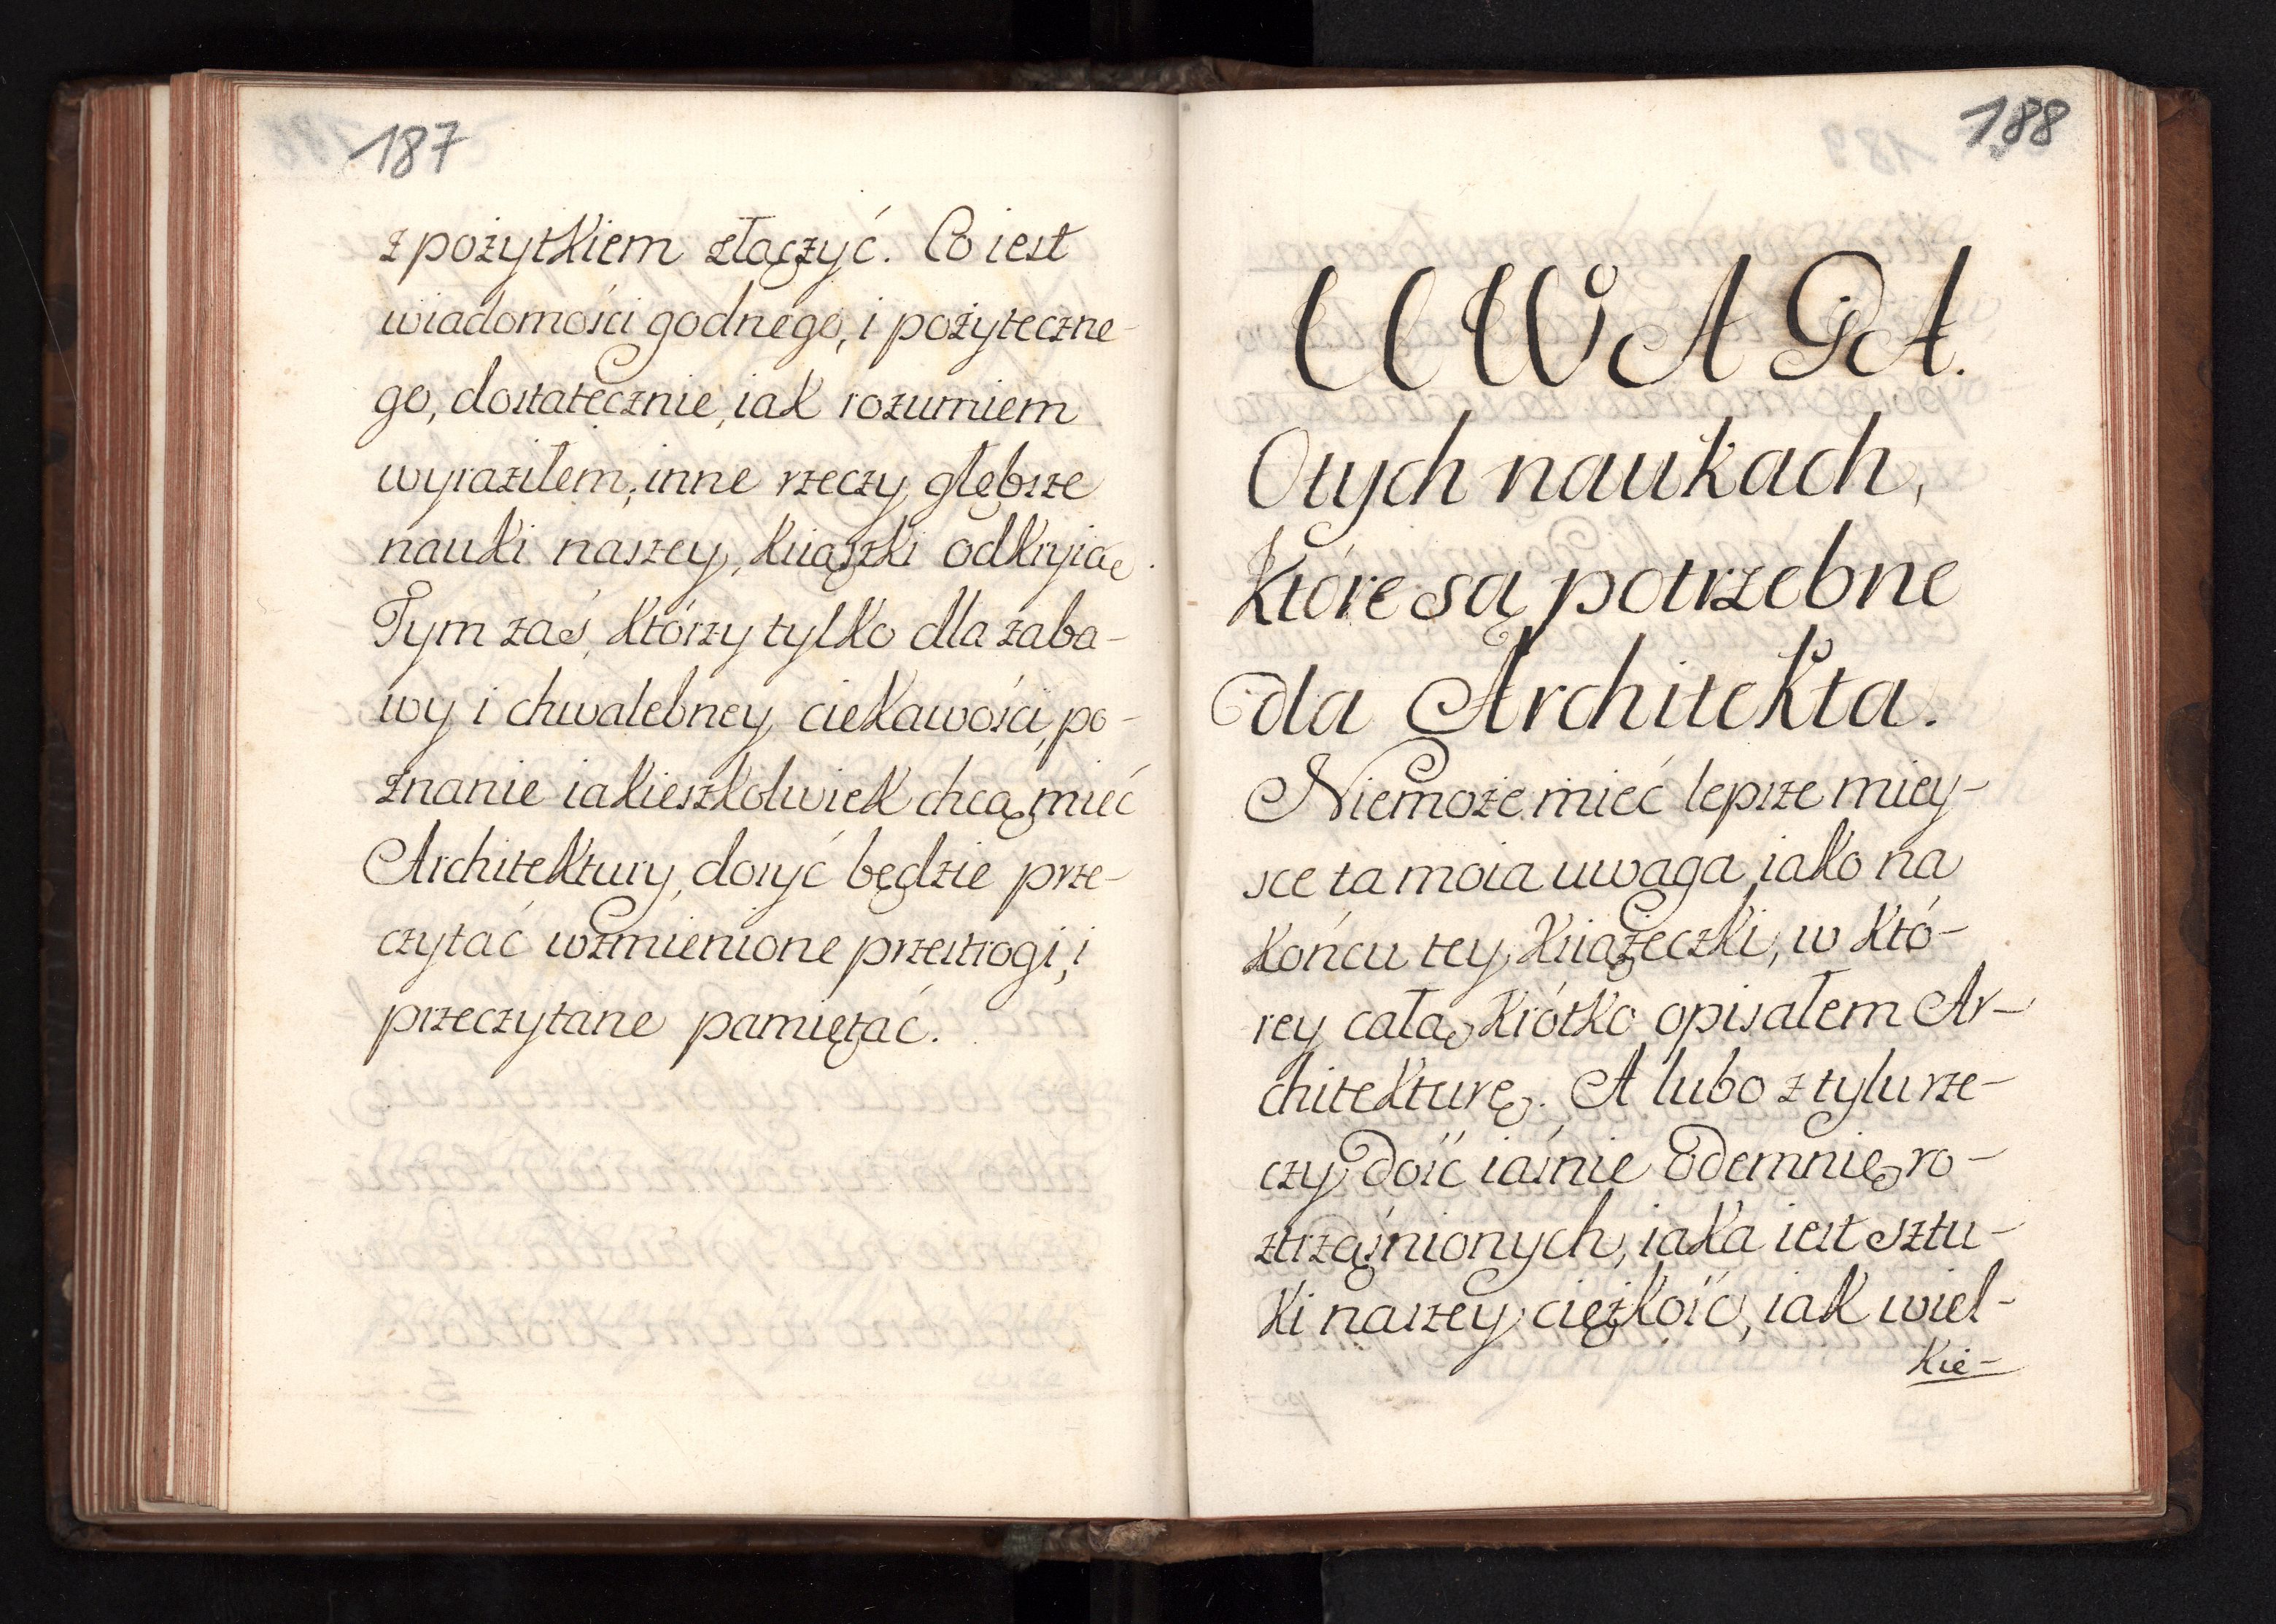 187
z pożytkiem złączyć. Co iest
wiadomości godnego, i pożyteczne-
go, dostatecznie, iak rozumiem
wyraziłem, inne rzeczy głębsze
nauki naszey, książki odkryią.
Tym zaś, którzy tylko dla zaba-
wy i chwalebney ciekawości, po-
znanie iakieszkolwiek chcą mieć
Architektury, dosyć będzie prze-
czytać wzmienione przestrogi, i
przeczytane pamiętać.
188
UWAGA.
O tych naukach,
które są potrzebne
dla Architekta.
Niemoże mieć lepsze miey-
sce ta moia uwaga, iako na
końcu tey książeczki, w któ-
rey całą krótko opisałem Ar-
chitekturę. A lubo z tylu rze-
czy dość iaśnie odemnię ro-
ztrząśnionych, iaka iest sztu-
ki naszey ciężkość, iak wiel-
kie-